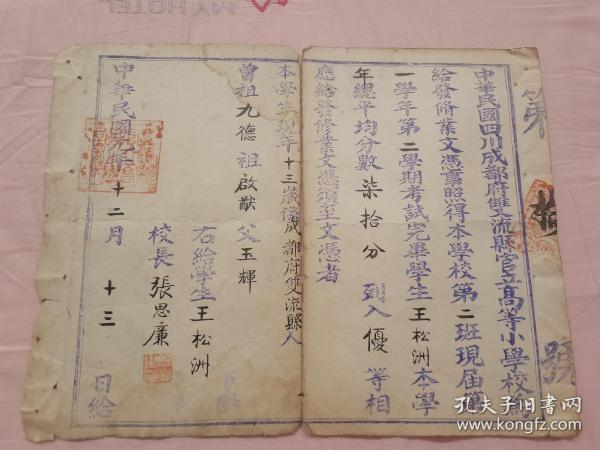 中華民國四川成都府雙流縣官立高等小學校
給發修業文憑事照得本學校第二班現屆第
一學年第二學期考試完畢學生王松洲本學
年總平均分數柒拾分列入優等相
應給發修業文憑須至文憑者
本學生現年十三歲係成都府雙流縣人
曾祖九德祖啟猷父玉輝
右給學生王松洲
校長張思廉
中華民國元年十二月十三日給
第
號
孔夫子旧书网
www.kongfz.com